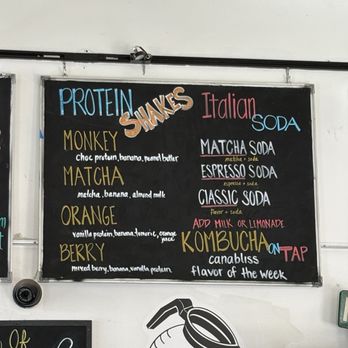 PROTEIN SHAKES
MONKEY
choc protein, banana, peanut butter
MATCHA
matcha, banana, almond milk
ORANGE
vanilla protein, banana, tumeric, orange
juice
BERRY
mixed berry, banana, vanilla protein
Italian
SODA
MATCHA SODA
matcha + soda
ESPRESSO SODA
espresso + soda
CLASSIC SODA
flavor + soda
ADD MILK OR LIMONADE
KOMBUCHA ON TAP
canabliss
flavor of the week
Of